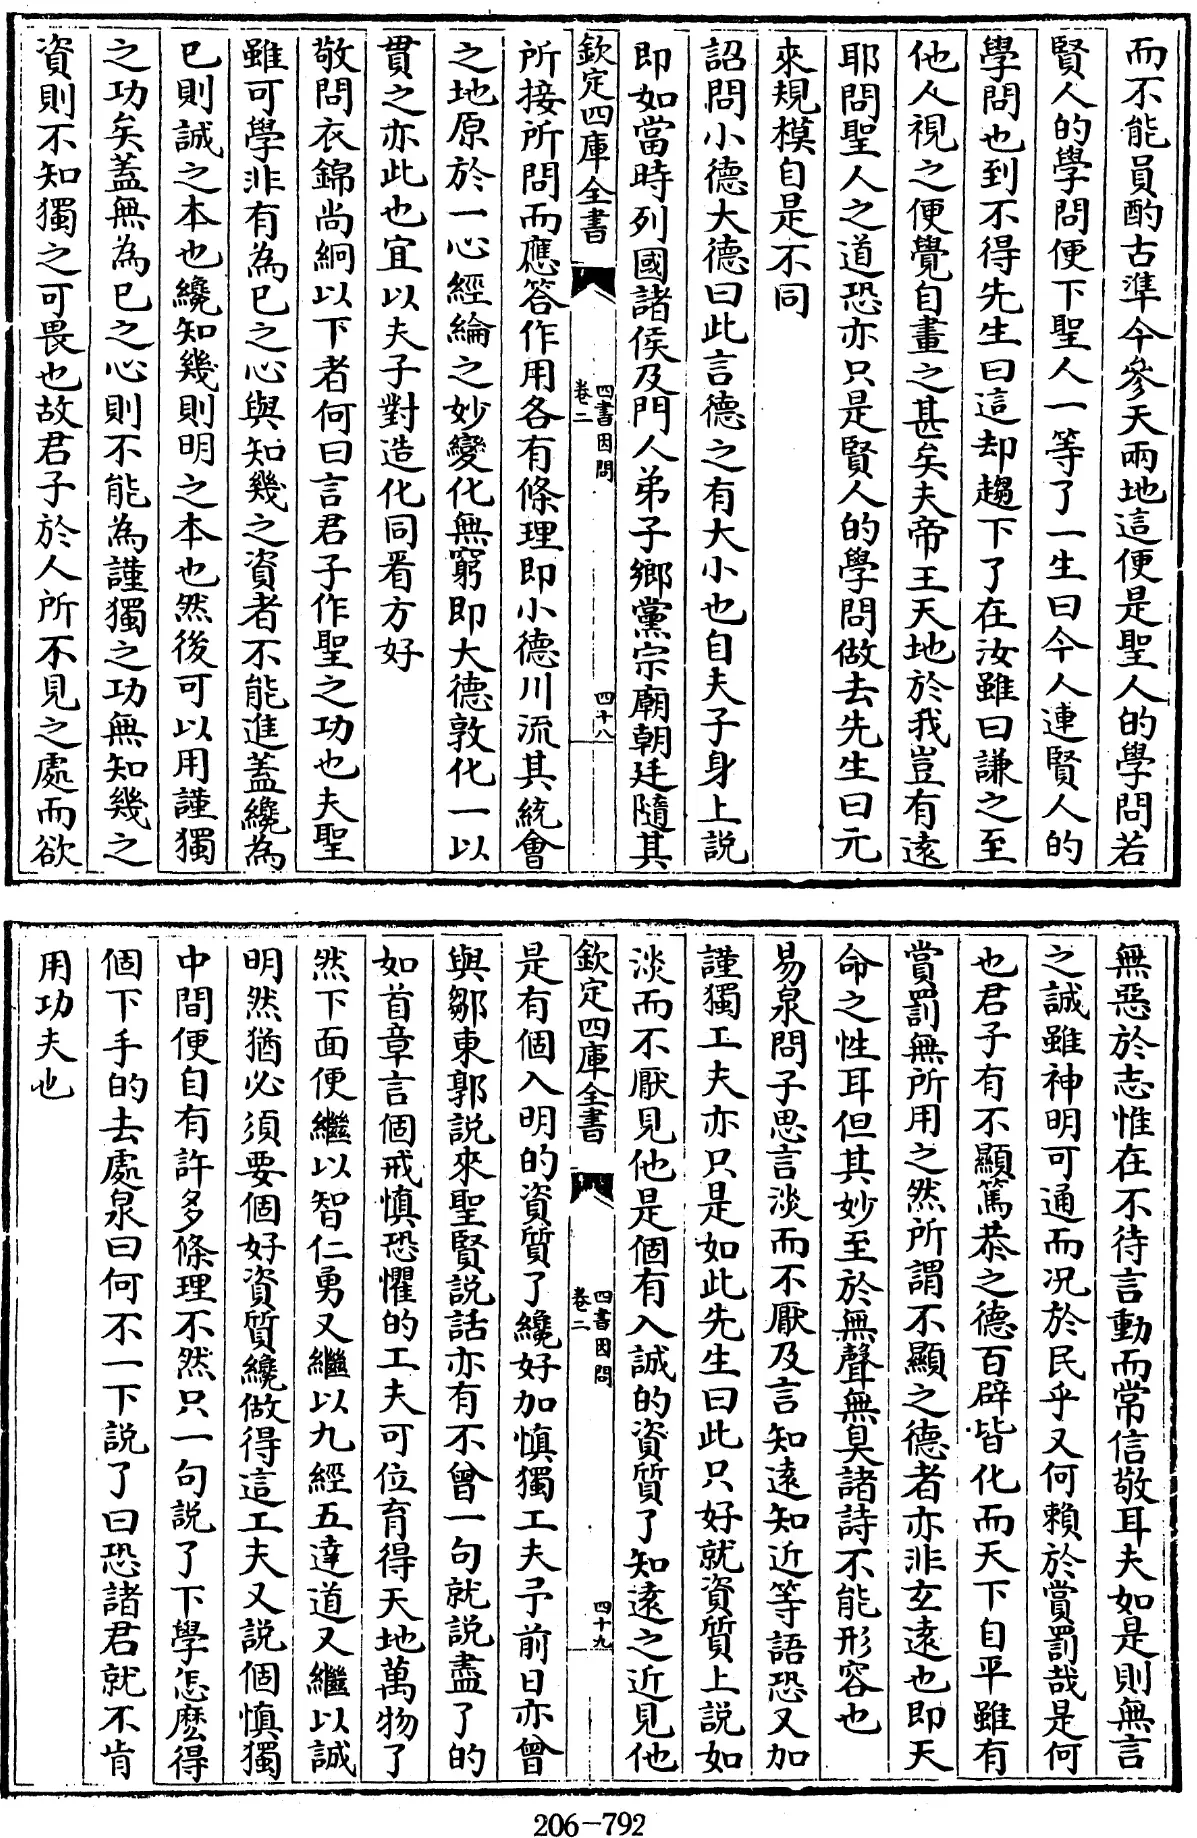 而不能員酌古準今參天兩地這便是聖人的學問若
賢人的學問便下聖人一等了一生曰今人連賢人的
學問也到不得先生曰這却趨下了在汝雖曰謙之至
他人視之便覺自畫之甚矣夫帝王天地於我豈有遠
耶問聖人之道恐亦只是賢人的學問做去先生曰元
來規模自是不同
詔問小德大德曰此言德之有大小也自夫子身上説
即如當時列國諸侯及門人弟子鄉黨宗廟朝廷隨其
欽定四庫全書
四書因問
卷二
四十八
所接所問而應答作用各有條理即小德川流其統會
之地原於一心經綸之妙變化無窮即大德敦化一以
貫之亦此也宜以夫子對造化同看方好
敬問衣錦尚絅以下者何曰言君子作聖之功也夫聖
雖可學非有為己之心與知幾之資者不能進蓋纔為
己則誠之本也纔知幾則明之本也然後可以用謹獨
之功矣蓋無為己之心則不能為謹獨之功無知幾之
資則不知獨之可畏也故君子於人所不見之處而欲
無惡於志惟在不待言動而常信敬耳夫如是則無言
之誠雖神明可通而况於民乎又何賴於賞罰哉是何
也君子有不顯篤恭之德百辟皆化而天下自平雖有
賞罰無所用之然所謂不顯之德者亦非玄遠也即天
命之性耳但其妙至於無聲無臭諸詩不能形容也
易泉問子思言淡而不厭及言知遠知近等語恐又加
謹獨工夫亦只是如此先生曰此只好就資質上説如
淡而不厭見他是個有入誠的資質了知遠之近見他
欽定四庫全書
四書因問
卷二
四十九
是有個入明的資質了纔好加慎獨工夫予前日亦曾
與鄒東郭説來聖賢説話亦有不曾一句就説盡了的
如首章言個戒慎恐懼的工夫可位育得天地萬物了
然下面便繼以智仁勇又繼以九經五達道又繼以誠
明然猶必須要個好資質纔做得這工夫又説個慎獨
中間便自有許多條理不然只一句説了下學怎麽得
個下手的去處泉曰何不一下説了曰恐諸君就不肯
用功夫也
206-792